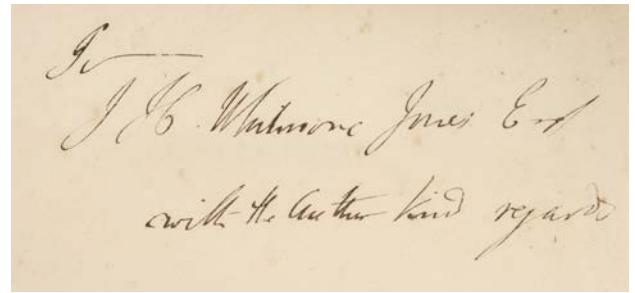 To
J H Whitmore Jones Esq
with the Author kind regards